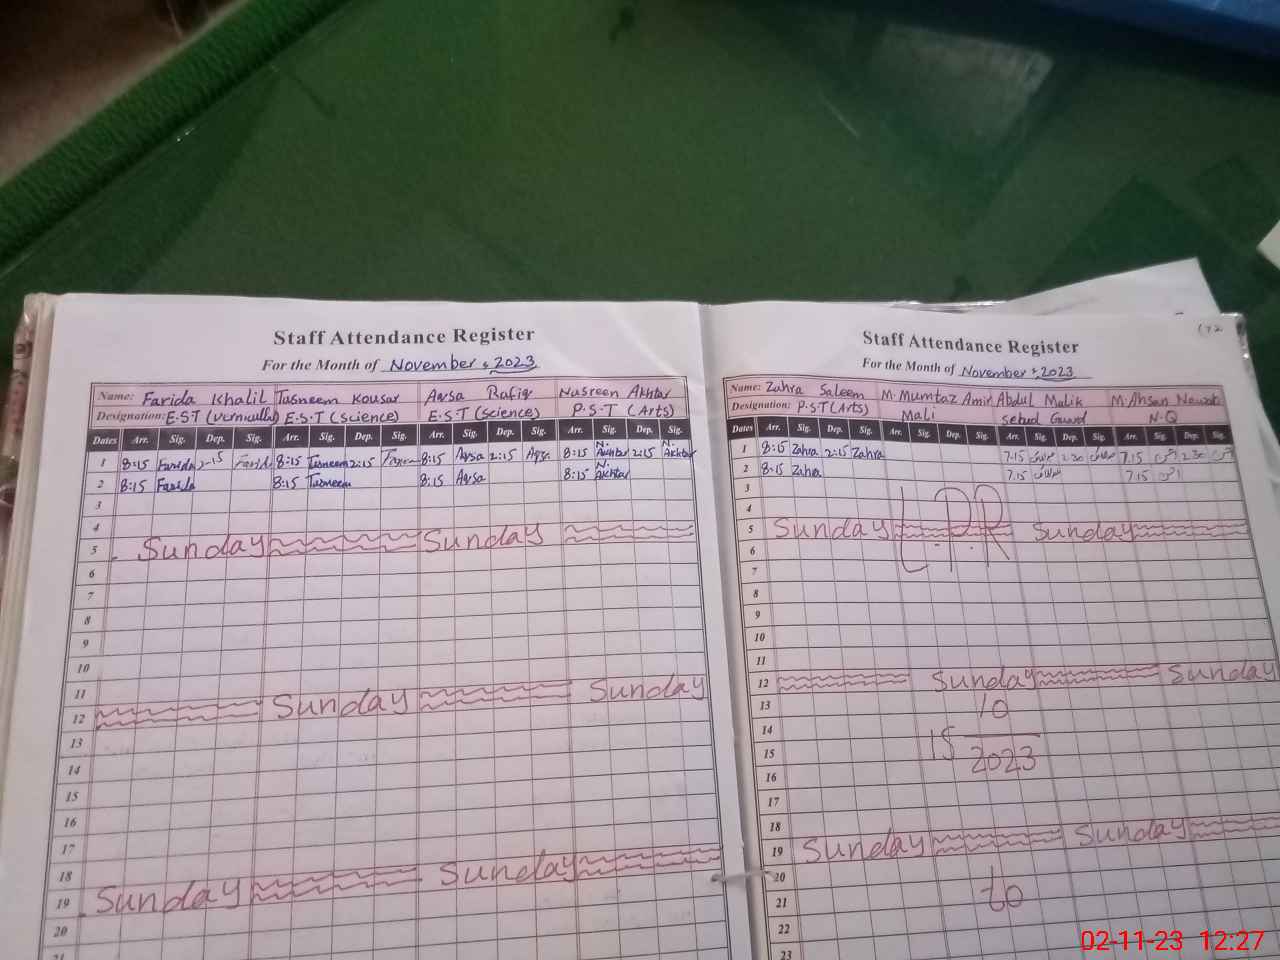 Staff Attendance Register
For the Month of November, 2023
Name: Farida Khalil Tasneem Kousar Aqsa Rafiq Nasreen Akhtar
Designation: E.S.T (Vernicully) E.S.T (Science) E.S.T (Science) P.S.T (Arts)
Dates Arr. Sig. Dep. Sig. Arr. Sig. Dep. Sig. Arr. Sig. Dep. Sig. Arr. Sig. Dep. Sig.
1 8:15 Farida 2-15 Farida 8:15 Tasneem 2:15 8:15 Aqsa 2:15 Aqsa 8:15 N. Akhtar 2:15 N. Akhtar
2 8:15 Farida 8:15 Tasneem 8:15 Aqsa 8:15 N. Akhtar
3
4
5 Sunday Sunday
6
7
8
9
10
11
12 Sunday Sunday
13
14
15
16
17
18
19 Sunday Sunday
20
21
172
Staff Attendance Register
For the Month of November, 2023
Name: Zahra Saleem M. Mumtaz Amir Abdul Malik M. Ahsan Nawab
Designation: P.S.T (Arts) Mali Guard N-Q
Dates Arr. Sig. Dep. Sig. Arr. Sig. Dep. Sig. Arr. Sig. Dep. Sig. Arr. Sig. Dep. Sig.
1 8:15 Zahra 2:15 Zahra 7.15 2.30 7.15 2.30
2 8:15 Zahra 7.15 7.15
3
4
L.P.R
5 Sunday Sunday
6
7
8
9
10
11
12 Sunday Sunday
13
14
15
15 10
2023
16
17
18
19 Sunday Sunday
20
21 to
22
23
02-11-23 12:27